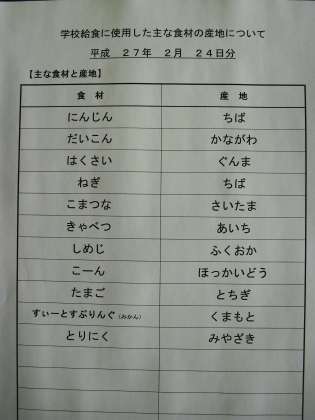 学校給食に使用した主な食材の産地について
平成　２７年　２月　２４日分
【主な食材と産地】
食　材　産　地
にんじん　ちば
だいこん　かながわ
はくさい　ぐんま
ねぎ　ちば
こまつな　さいたま
きゃべつ　あいち
しめじ　ふくおか
こーん　ほっかいどう
たまご　とちぎ
すぃーとすぷりんぐ（みかん）　くまもと
とりにく　みやざき